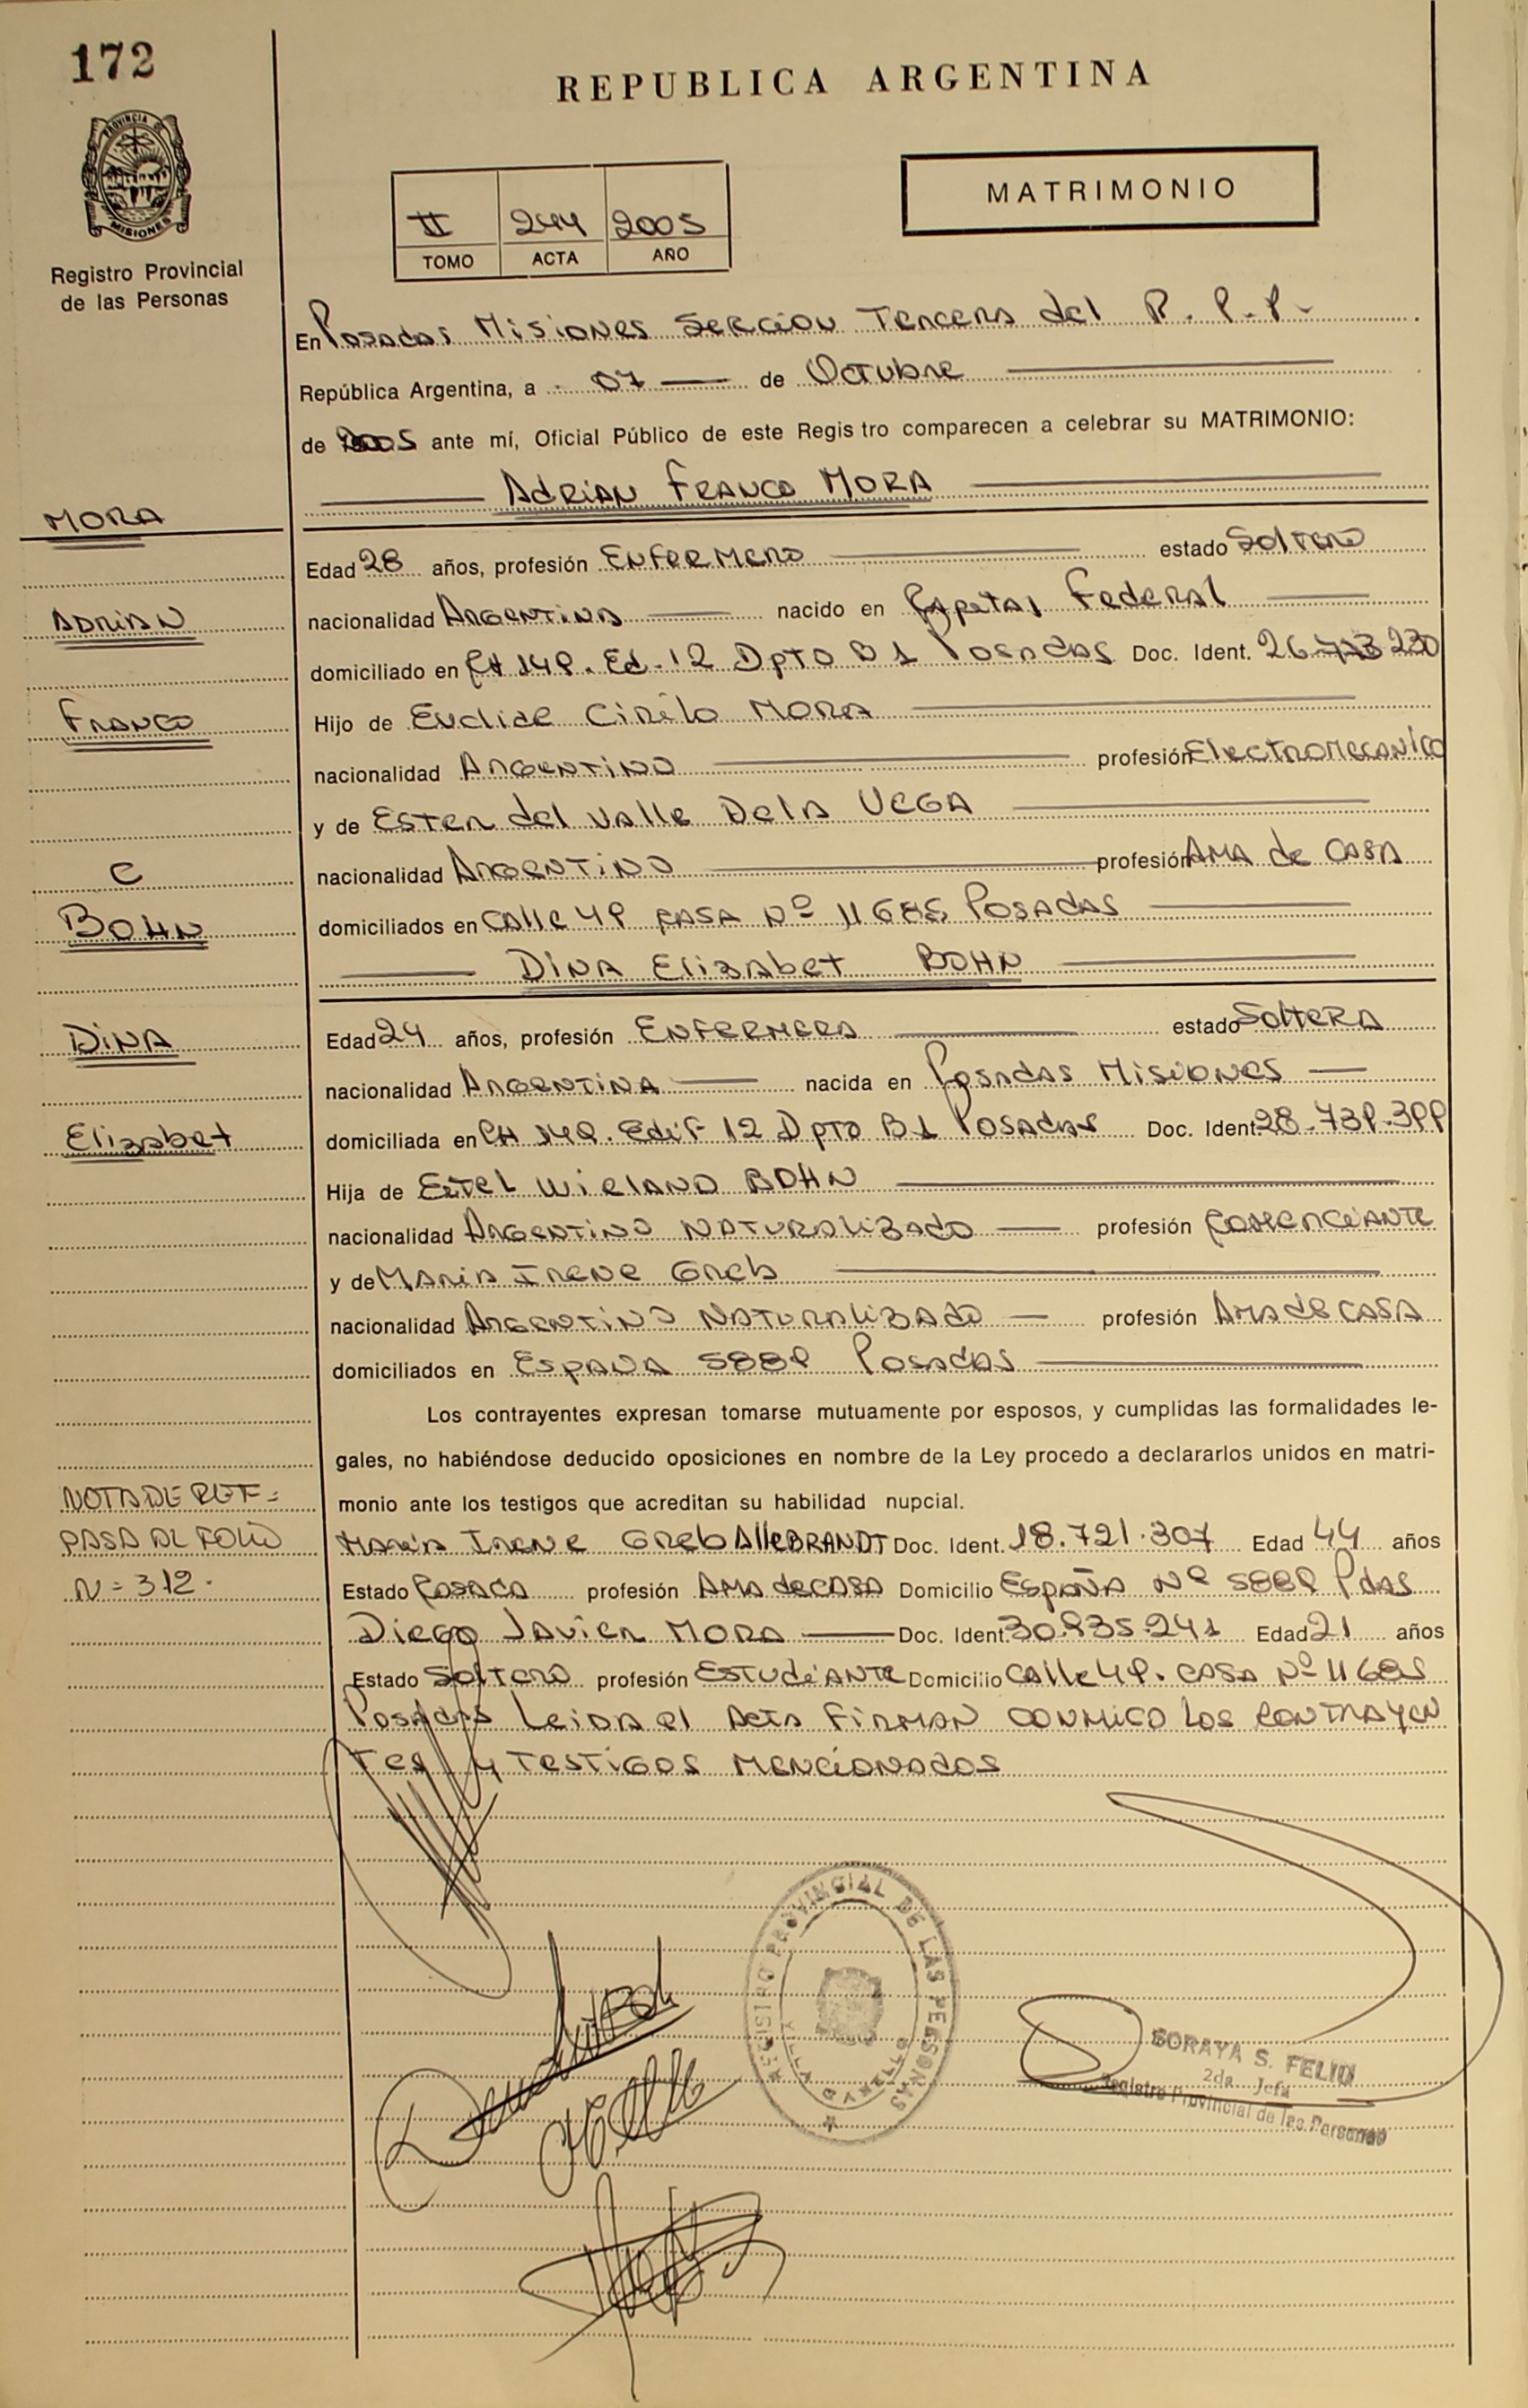 172
REPUBLICA ARGENTINA
PROVINCIA DE
MISIONES
MATRIMONIO
II 244 2005
TOMO ACTA AÑO
Registro Provincial
de las Personas
En Posadas Misiones Seccion Tercera del R. P. P.
República Argentina, a 07 — de Octubre
de 2005 ante mí, Oficial Público de este Regis tro comparecen a celebrar su MATRIMONIO:
Adrian Franco MORA
MORA
Edad 28 años, profesión Enfermero estado Soltero
ADRIAN
nacionalidad Argentina nacido en Capital Federal
domiciliado en CH 149. Ed. 12 Dpto B1 Posadas Doc. Ident. 26 230
Franco
Hijo de Euclide Cirilo MORA
nacionalidad Argentino profesión Electromecanico
y de Ester del Valle Dela VEGA
C
nacionalidad Argentino profesión AMA de CASA
BOHN
domiciliados en Calle 49 CASA Nº 11685 Posadas
DINA Elizabet BOHN
DINA
Edad 24 años, profesión ENFERMERA estado Soltera
nacionalidad Argentina nacida en Posadas Misiones
Elizabet
domiciliada en CH 149. Edif 12 Dpto B1 Posadas Doc. Ident. 28.739.399
Hija de Estel Wieland BOHN
nacionalidad Argentino Naturalizado profesión Comerciante
y de Maria Irene Greb
nacionalidad Argentino Naturalizado profesión AMA de CASA
domiciliados en España 5889 Posadas
Los contrayentes expresan tomarse mutuamente por esposos, y cumplidas las formalidades le-
gales, no habiéndose deducido oposiciones en nombre de la Ley procedo a declararlos unidos en matri-
NOTA DE REF=
monio ante los testigos que acreditan su habilidad nupcial.
PASA AL FOLIO
Maria Irene Greb AlleBRANDT Doc. Ident. 18.721.307 Edad 44 años
N=312.
Estado Casada profesión AMA de CASA Domicilio España Nº 5889 Pdas
Diego Javier MORA Doc. Ident. 30.935.241 Edad 21 años
Estado Soltero profesión Estudiante Domicilio Calle 49. CASA Nº 11685
Posadas Leida el Acta Firman conmigo los contrayen
tes y testigos mencionados
REGISTRO PROVINCIAL DE LAS PERSONAS
SORAYA S. FELIU
2da. Jefa
Registro Provincial de las Personas